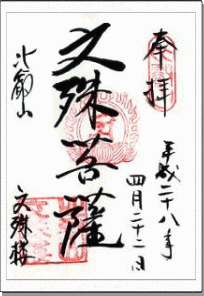 奉拝
平成二十八年
四月二十二日
文殊菩薩
比叡山
文殊楼